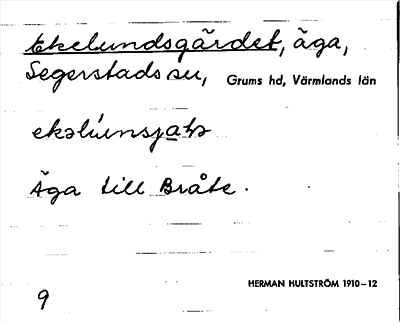 Ekelundsgärdet, äga,
Segerstads sn, Grums hd, Värmlands län
Äga till Bråte.
HERMAN HULTSTRÖM 1910–12
9